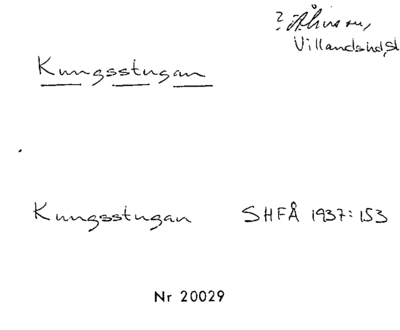 ? Åhus sn,
Villands hd, Sk
Kungsstugan
Kungsstugan SHFÅ 1937:153
Nr 20029